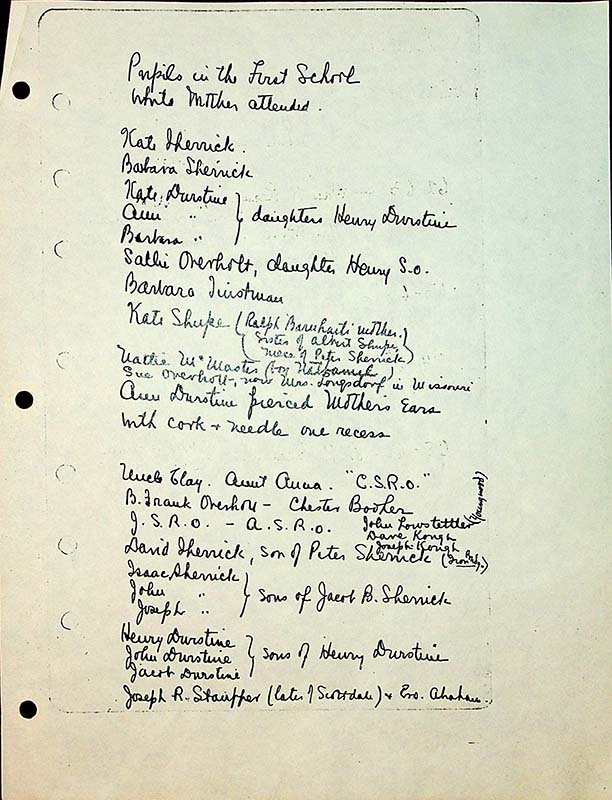 Pupils in the First School
which Mother attended.
Kate Sherrick.
Barbara Sherrick
Kate Durstine
Ann " " } daughters Henry Durstine
Barbara "
Sallie Overholt, daughter Henry S.O.
Barbara Tinstman
Kate Shupe (Ralph Barnhart's mother.)
Sister of Albert Shupe
niece of Peter Sherrick)
Hattie McMaster
Sue Overholt, now Mrs. Longsdorf in Missouri
Ann Durstine pierced Mother's Ears
with cork + needle one recess
Uncle Clay. Aunt Anna. "C.S.R.O."
B. Frank Overholt - Chester Booher
J.S.R.O. - A.S.R.O. John Lowstettler (Youngwood)
Dave Kough
Joseph Kough
David Sherrick, son of Peter Sherrick
Isaac Sherrick
John " } sons of Jacob B. Sherrick
Joseph "
Henry Durstine
John Durstine } sons of Henry Durstine
Jacob Durstine
Joseph R. Stauffer (later of Scottdale) + Bro. Abraham.